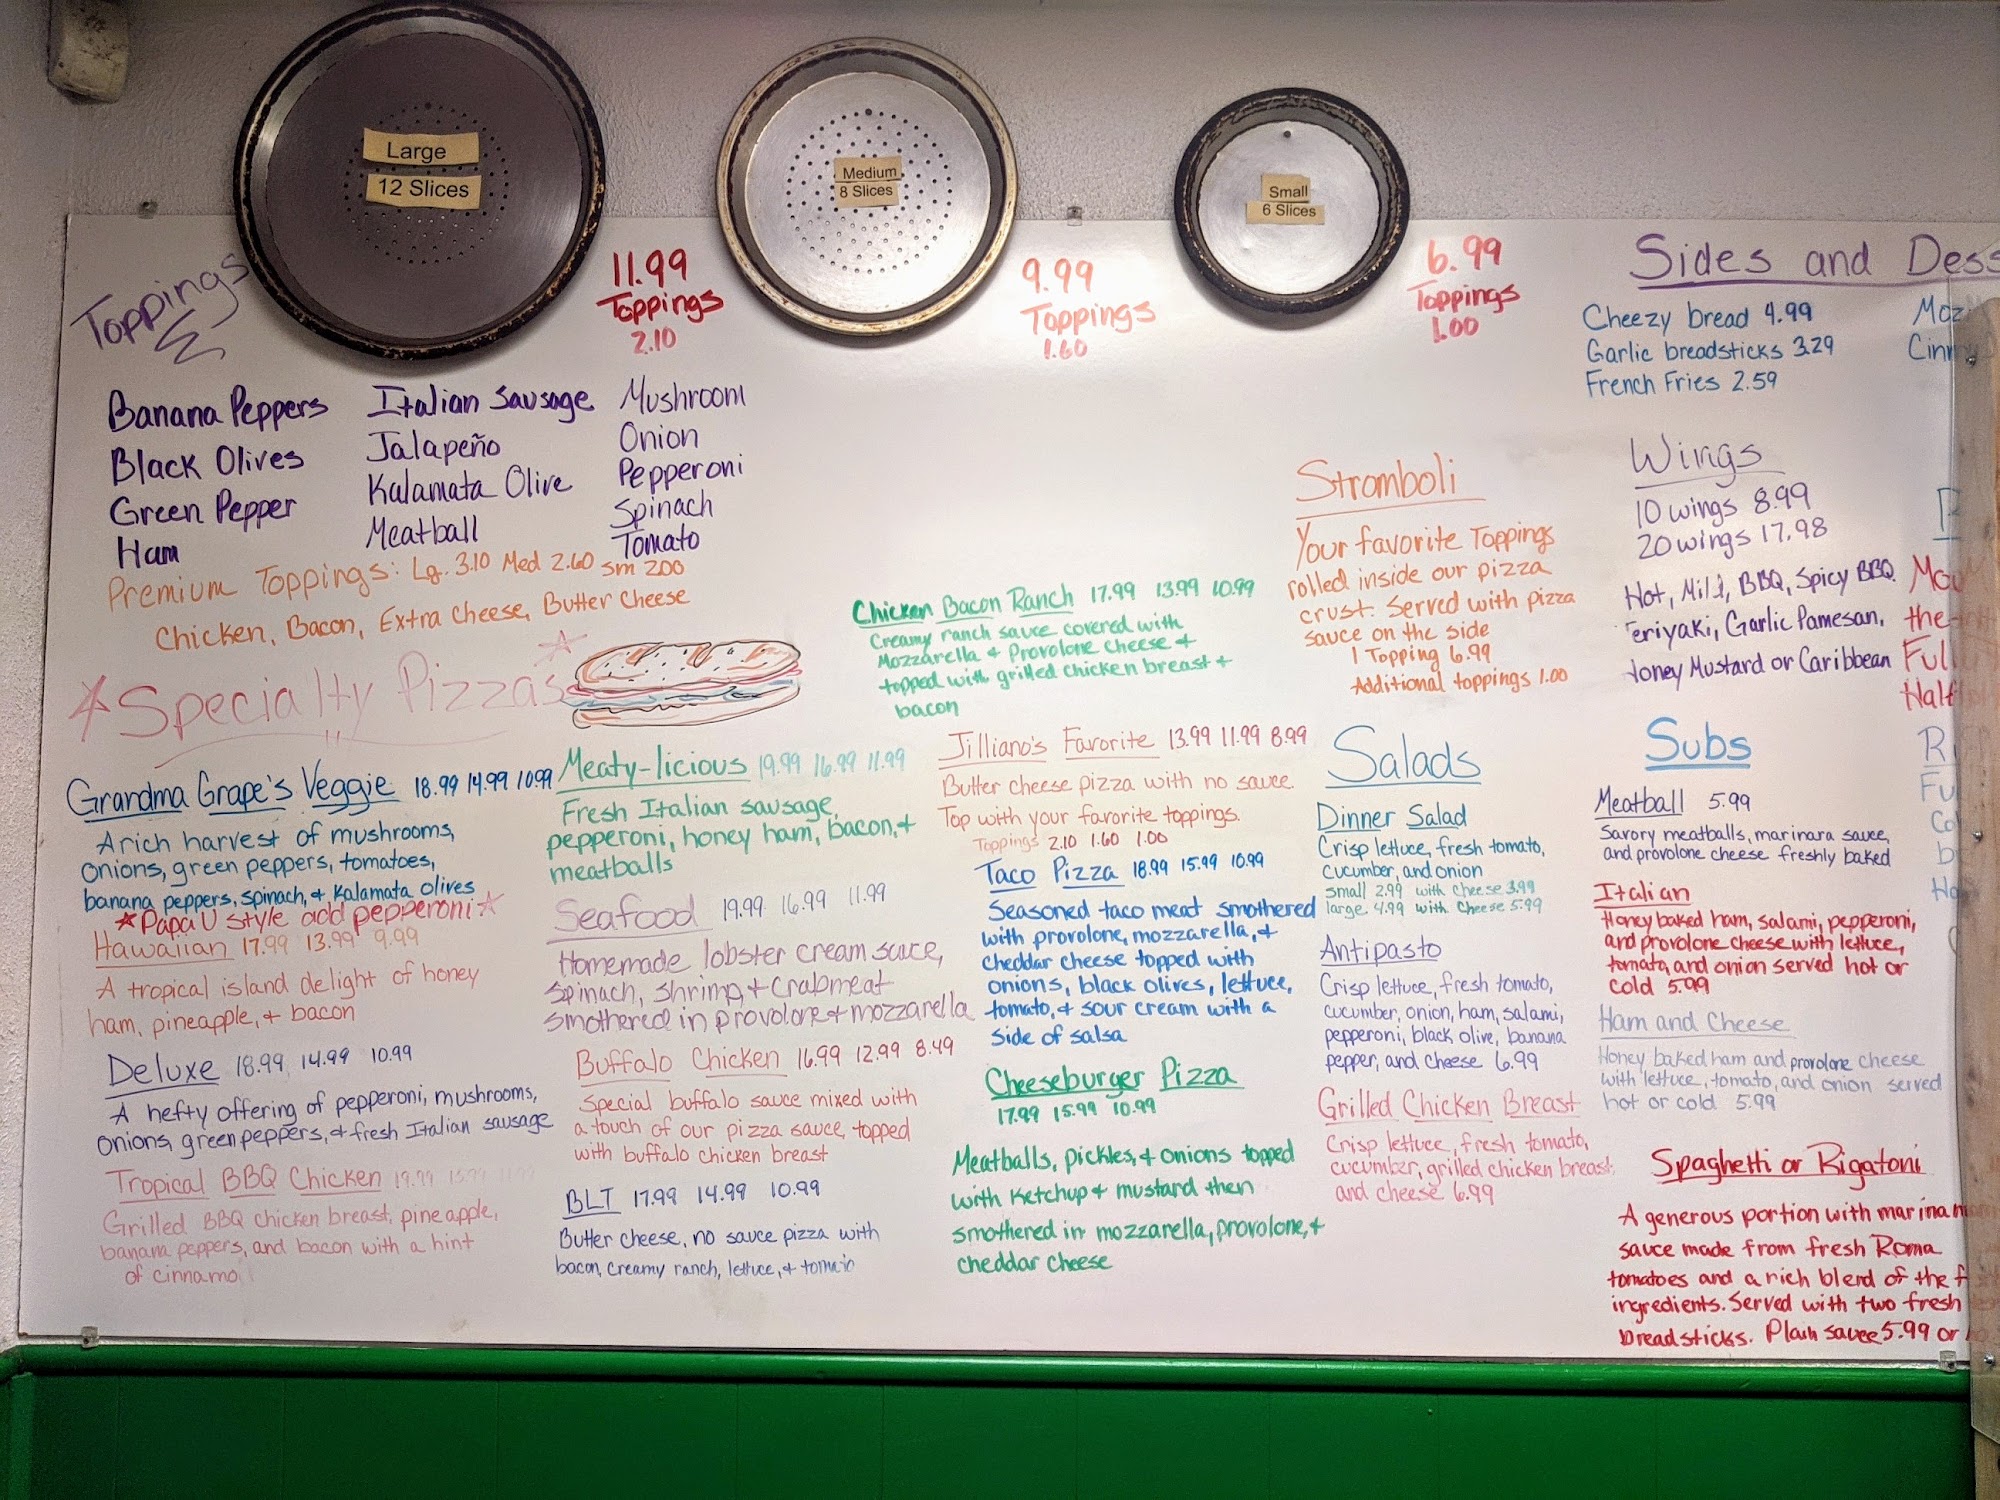 Large
12 Slices
Medium
8 Slices
Small
6 Slices
Toppings
11.99
Toppings
2.10
9.99
Toppings
1.60
6.99
Toppings
1.00
Banana Peppers
Black Olives
Green Pepper
Ham
Italian Sausage
Jalapeño
Kalamata Olive
Meatball
Mushroom
Onion
Pepperoni
Spinach
Tomato
Premium Toppings: Lg. 3.10 Med 2.60 sm 200
Chicken, Bacon, Extra Cheese, Butter Cheese
Specialty Pizzas
Grandma Grape's Veggie 18.99 14.99 10.99
A rich harvest of mushrooms,
onions, green peppers, tomatoes,
banana peppers, spinach, & Kalamata olives
Papa U style add pepperoni
Hawaiian 17.99 13.99 9.99
A tropical island delight of honey
ham, pineapple, & bacon
Deluxe 18.99 14.99 10.99
A hefty offering of pepperoni, mushrooms,
onions, green peppers, & fresh Italian sausage
Tropical BBQ Chicken 19.99 15.99
Grilled BBQ chicken breast, pineapple,
banana peppers, and bacon with a hint
of cinnamo
Meaty-licious 19.99 16.99 11.99
Fresh Italian sausage,
pepperoni, honey ham, bacon, &
meatballs
Seafood 19.99 16.99 11.99
Homemade lobster cream sauce,
spinach, shrimp, & crabmeat
smothered in provolone & mozzarella
Buffalo Chicken 16.99 12.99 8.49
Special buffalo sauce mixed with
a touch of our pizza sauce, topped
with buffalo chicken breast
BLT 17.99 14.99 10.99
Butter cheese, no sauce pizza with
bacon, creamy ranch, lettuce, & tomato
Chicken Bacon Ranch 17.99 13.99 10.99
Creamy ranch sauce covered with
Mozzarella & Provolone cheese &
topped with grilled chicken breast &
bacon
Jilliano's Favorite 13.99 11.99 8.99
Butter cheese pizza with no sauce.
Top with your favorite toppings.
Toppings 2.10 1.60 1.00
Taco Pizza 18.99 15.99 10.99
Seasoned taco meat smothered
with provolone, mozzarella, &
cheddar cheese topped with
onions, black olives, lettuce,
tomato, & sour cream with a
side of salsa
Cheeseburger Pizza
17.99 15.99 10.99
Meatballs, pickles, & onions topped
with ketchup & mustard then
smothered in mozzarella, provolone, &
cheddar cheese
Stromboli
Your favorite Toppings
rolled inside our pizza
crust. Served with pizza
sauce on the side
1 Topping 6.99
Additional toppings 1.00
Salads
Dinner Salad
Crisp lettuce, fresh tomato,
cucumber, and onion
small 2.99 with cheese 3.99
large 4.99 with cheese 5.99
Antipasto
Crisp lettuce, fresh tomato,
cucumber, onion, ham, salami,
pepperoni, black olive, banana
pepper, and cheese 6.99
Grilled Chicken Breast
Crisp lettuce, fresh tomato,
cucumber, grilled chicken breast
and cheese 6.99
Sides and Dess
Cheezy bread 4.99
Garlic breadsticks 3.29
French Fries 2.59
Moz
Cinn
Wings
10 wings 8.99
20 wings 17.98
Hot, Mild, BBQ, Spicy BBQ
Teriyaki, Garlic Pamesan,
Honey Mustard or Caribbean
the
Ful
Half
Subs
Meatball 5.99
Savory meatballs, marinara sauce,
and provolone cheese freshly baked
Italian
Honey baked ham, salami, pepperoni,
and provolone cheese with lettuce,
tomato, and onion served hot or
cold 5.99
Ham and Cheese
Honey baked ham and provolone cheese
with lettuce, tomato, and onion served
hot or cold 5.99
Spaghetti or Rigatoni
A generous portion with marinara
sauce made from fresh Roma
tomatoes and a rich blend of the f
ingredients. Served with two fresh
breadsticks. Plain sauce 5.99 or